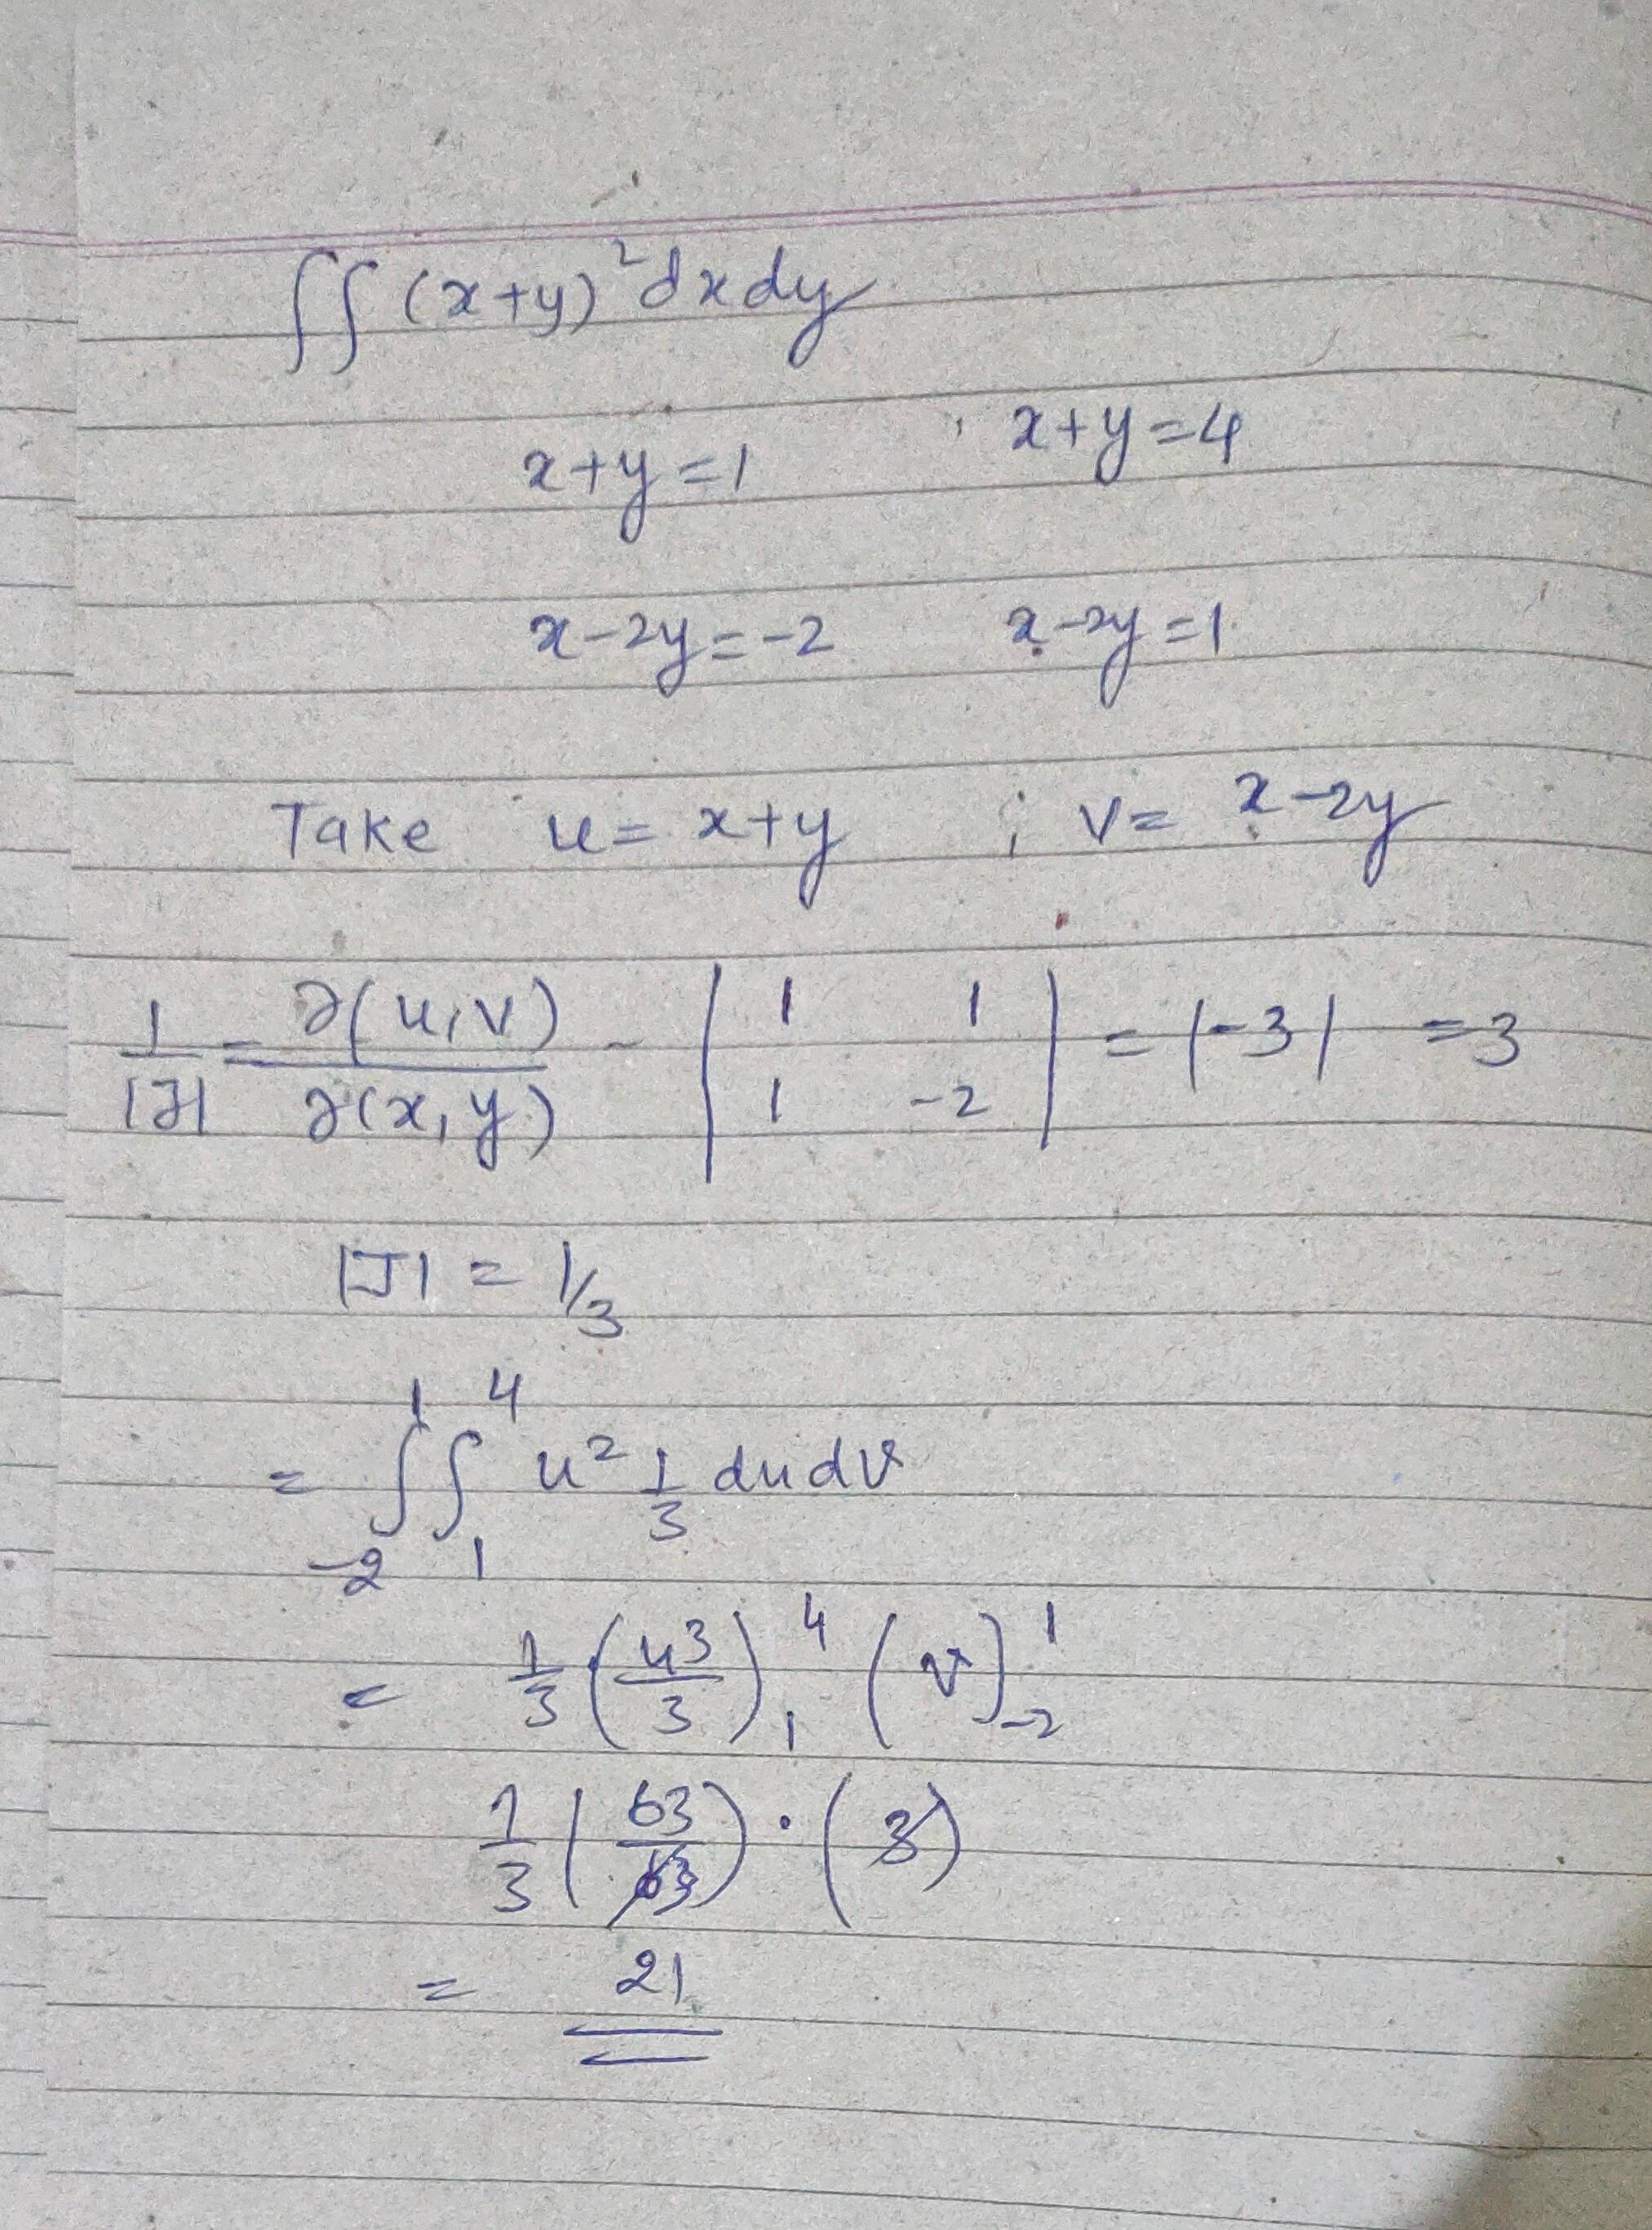 ∫∫ (x+y)² dx dy
x+y=1 , x+y=4
x-2y=-2 x-2y=1
Take u= x+y ; v= x-2y
1/|J| = ∂(u,v)/∂(x,y) - | 1 1 ; 1 -2 | = |-3| =3
|J| = 1/3
= ∫_{-2}^{1} ∫_{1}^{4} u² 1/3 du dv
= 1/3 (u³/3)_{1}^{4} (v)_{-2}^{1}
1/3 (63/3) · (3)
= 21